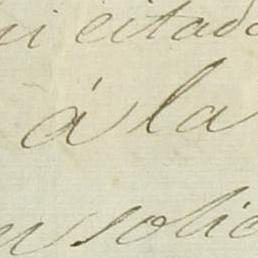 mi citado
á la
su solic